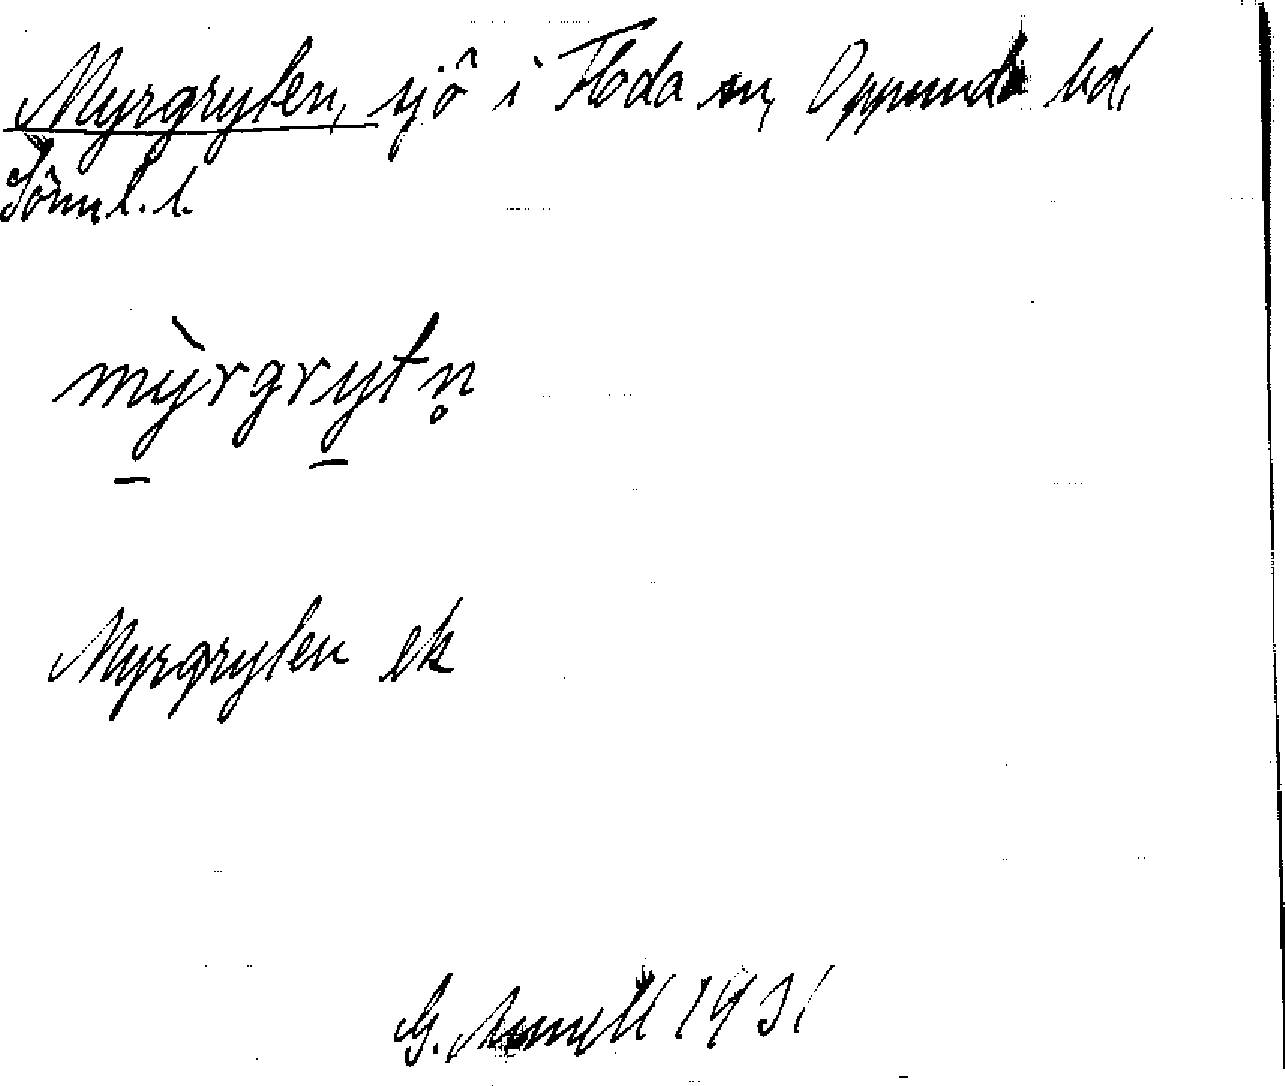 Myrgryten, sjö i Floda sn, Oppunda hd,
Sörml. l.
mỳrgrytn̥
Myrgryten ek
G. 1931